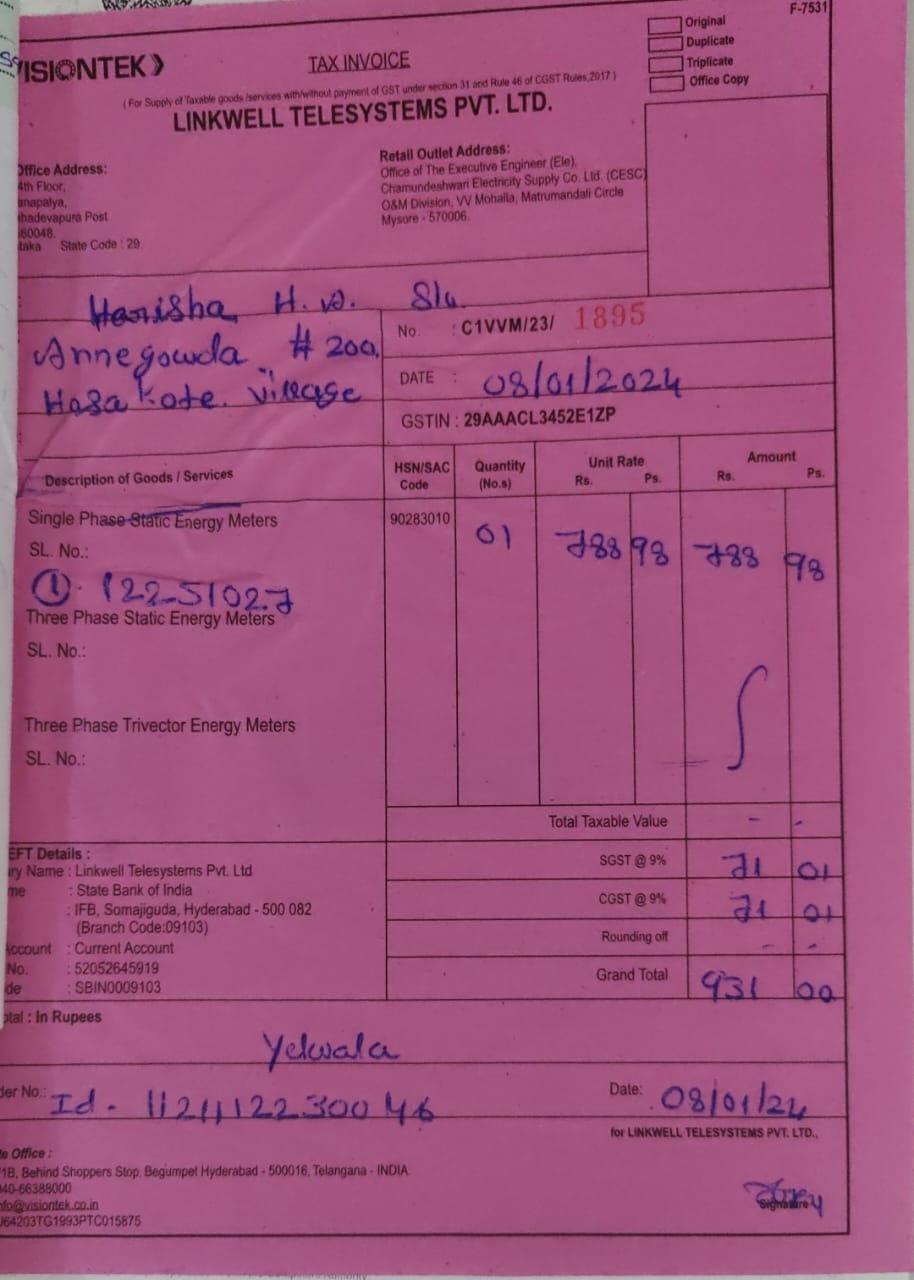 F-7531
VISIONTEK
TAX INVOICE
Original
Duplicate
Triplicate
Office Copy
( For Supply of Taxable goods /services with/without payment of GST under section 31 and Rule 46 of CGST Rules,2017 )
LINKWELL TELESYSTEMS PVT. LTD.
Office Address:
4th Floor,
anapalya,
hadevapura Post
60048.
taka State Code : 29
Retail Outlet Address:
Office of The Executive Engineer (Ele),
Chamundeshwari Electricity Supply Co. Ltd. (CESC)
O&M Division, VV Mohalla, Matrumandali Circle
Mysore - 570006.
Harisha H.V. S/o.
Annegowda # 200,
Hosa Kote. Village
No. : C1VVM/23/ 1895
DATE : 08/01/2024
GSTIN : 29AAACL3452E1ZP
Description of Goods / Services HSN/SAC Code Quantity (No.s) Unit Rate Rs. Ps. Amount Rs. Ps.
Single Phase Static Energy Meters 90283010 01 788 98 788 98
SL. No.:
① 12251027
Three Phase Static Energy Meters
SL. No.:
Three Phase Trivector Energy Meters
SL. No.:
Total Taxable Value - -
SGST @ 9% 71 01
CGST @ 9% 71 01
Rounding off - -
Grand Total 931 00
EFT Details :
ry Name : Linkwell Telesystems Pvt. Ltd
me : State Bank of India
: IFB, Somajiguda, Hyderabad - 500 082
(Branch Code:09103)
Account : Current Account
No. : 52052645919
de : SBIN0009103
otal : In Rupees
Yelwala
der No.: Id - 1121112230046
Date: 08/01/24
for LINKWELL TELESYSTEMS PVT. LTD.,
te Office :
1B, Behind Shoppers Stop, Begumpet Hyderabad - 500016, Telangana - INDIA
040-66388000
nfo@visiontek.co.in
U64203TG1993PTC015875
Signature